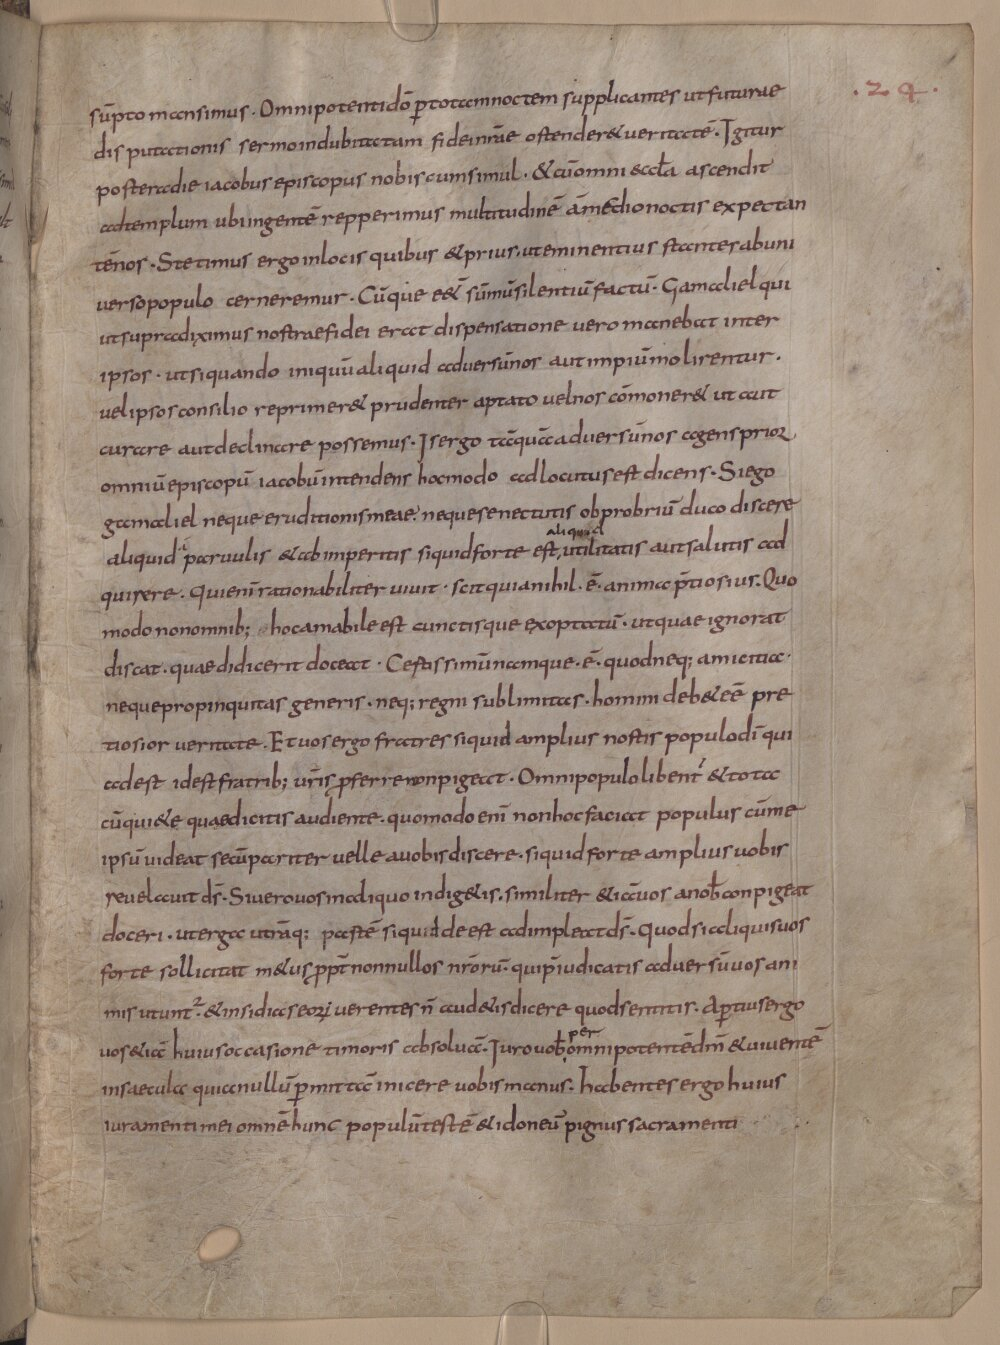 .24.
sūpto mansimus. Omnipotentidō ꝑtotamnoctem supplicantes utfuturae
disputationis sermoindubitatam fideinrāe ostender&ueritatē. Igitur
posteradie iacobus episcopus nobiscumsimul. &cūomni eccłā ascendit
adtemplum ubiingentē repperimus multitudinē āmedionoctis expectan
tēnos. Stetimus ergo inlocis quibus &prius. uteminentius stantes abuni
uersopopulo cerneremur. Cūque e&̄ sūmūsilentiū factū. Gamaliel qui
utsupradiximus nostraefidei erat dispensatione uero manebat inter
ipsos. utsiquando iniquū aliquid aduersūnos aut impiūmolirentur.
uel ipsos consilio reprimer& prudenter aptato uelnos cōmoner& ut caut
curare autdeclinare possemus. Isergo tāquāaduersūnos agens prior
omniūepiscopū iacobūintendens hocmodo adlocutusest dicens. Siego
gamaliel neque eruditionismeae. nequesenectutis obprobriū duco discere
aliquid paruulis &abimperitis siquidforte est, utilitatis autsalutis ad
aliquid
quirere. Quienī rationabiliter uiuit. scit quianihil. ē. anima p̄tiosius. Quo
modo nonomnib; hocamabile est cunctisque exoptatū. utquae ignorat
discat. quae didicerit doceat. Certissimūnamque. ē. quodneq; amicitia.
nequepropinquitas generis. neq; regni sublimitas. homini deb&eē pre
tiosior ueritate. Et uosergo fratres siquid amplius nostis populodī qui
adest idestfratrib; ur̄is ꝓferrenonpigeat. Omnipopulo libent̄ &tota
cūqui&e quaedicitis audiente. quomodo enī nonhocfaciat populus cūme
ipsū uideat secūpariter uelle auobisdiscere. siquidforte amplius uobis
reuelauit ds̄. Siuerouos inaliquo indig&is. similiter &iāuos anob̄ conpigeat
doceri. uterga utrāq; pastē siquid deest adimpleat ds̄. Quodsialiquisuos
forte sollicitat m&us ꝓpt̄ nonnullos nrōrū. quip̄iudicatis aduersūuos ani
mis utunt̄. &insidias eorꝝ uerentes n̄ aud&is dicere quodsentitis. Aꝑtiusergo
uos&iā huiusoccasione timoris absoluā. Iurouob̄ omnipotentēdm̄ &uiuentē
per
insaecula quianullūꝑmittā inicere uobis manus. habentes ergo huius
iuramentimei omnēhunc populūtestē &idoneū pignus sacramenti